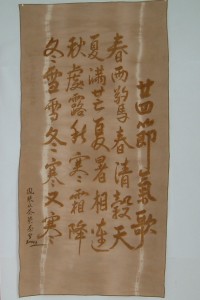 廿四節氣歌
春雨驚春清穀天
夏滿芒夏暑相連
秋處露秋寒霜降
冬雪雪冬寒又寒